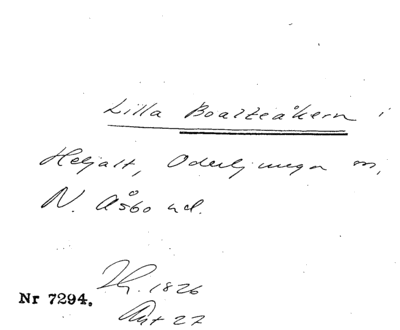 Lilla Boalteåkern i
Heljalt, Oderljunga sn,
N. Åsbo hd.
1826
Akt 27
Nr 7294.